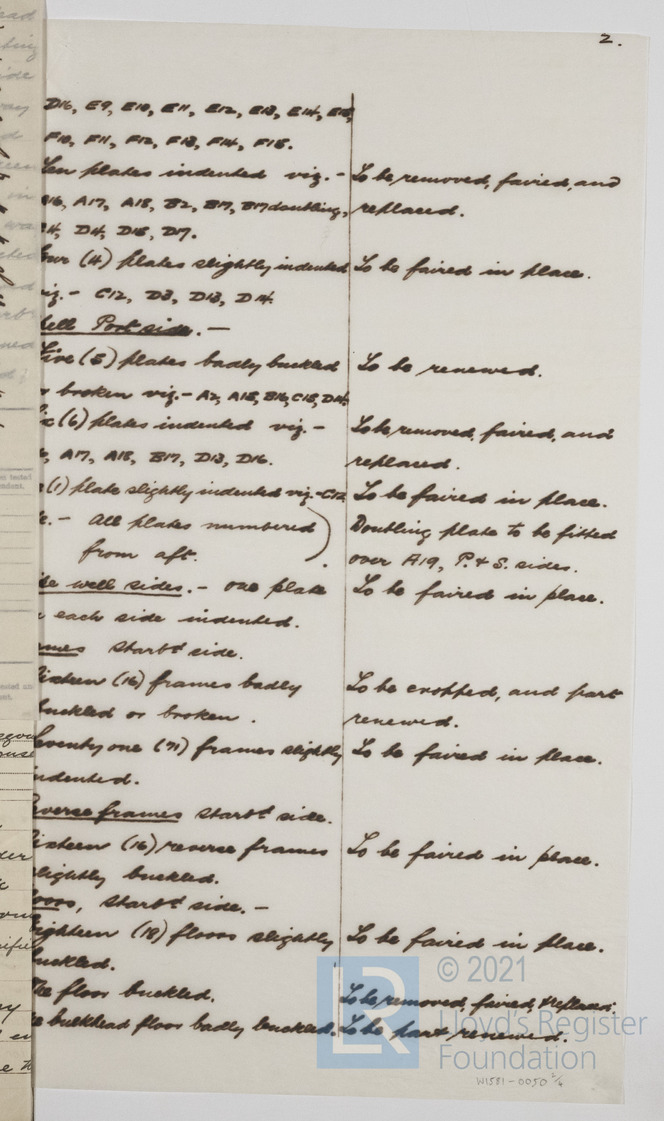 2.
D16, E9, E10, E11, E12, E13, E14, E15,
F10, F11, F12, F13, F14, F15.
Ten plates indented viz. - To be removed, faired, and
A16, A17, A18, B2, B17, B17 doubling, replaced.
D4, D15, D17.
Four (4) plates slightly indented To be faired in place.
viz. - C12, D3, D13, D14.
Shell Port side. -
Five (5) plates badly buckled To be renewed.
or broken viz. - A2, A15, B16, C15, D14.
Six (6) plates indented viz. - To be removed, faired, and
A17, A18, B17, D13, D16. replaced.
(1) plate slightly indented viz - C12 To be faired in place.
- All plates numbered Doubling plate to be fitted
from aft. over A19, P. & S. sides.
well sides. - one plate To be faired in place.
each side indented.
Frames Starbd side.
Sixteen (16) frames badly To be cropped, and part
buckled or broken. renewed.
Seventy one (71) frames slightly To be faired in place.
indented.
Reverse frames Starbd side.
Sixteen (16) reverse frames To be faired in place.
slightly buckled.
Floors, Starbd side. -
Eighteen (18) floors slightly To be faired in place.
buckled.
floor buckled. To be removed, faired, & replaced.
bulkhead floor badly buckled. To be part renewed.
© 2021
Lloyd's Register
Foundation
LR
W1551-0050 2/4